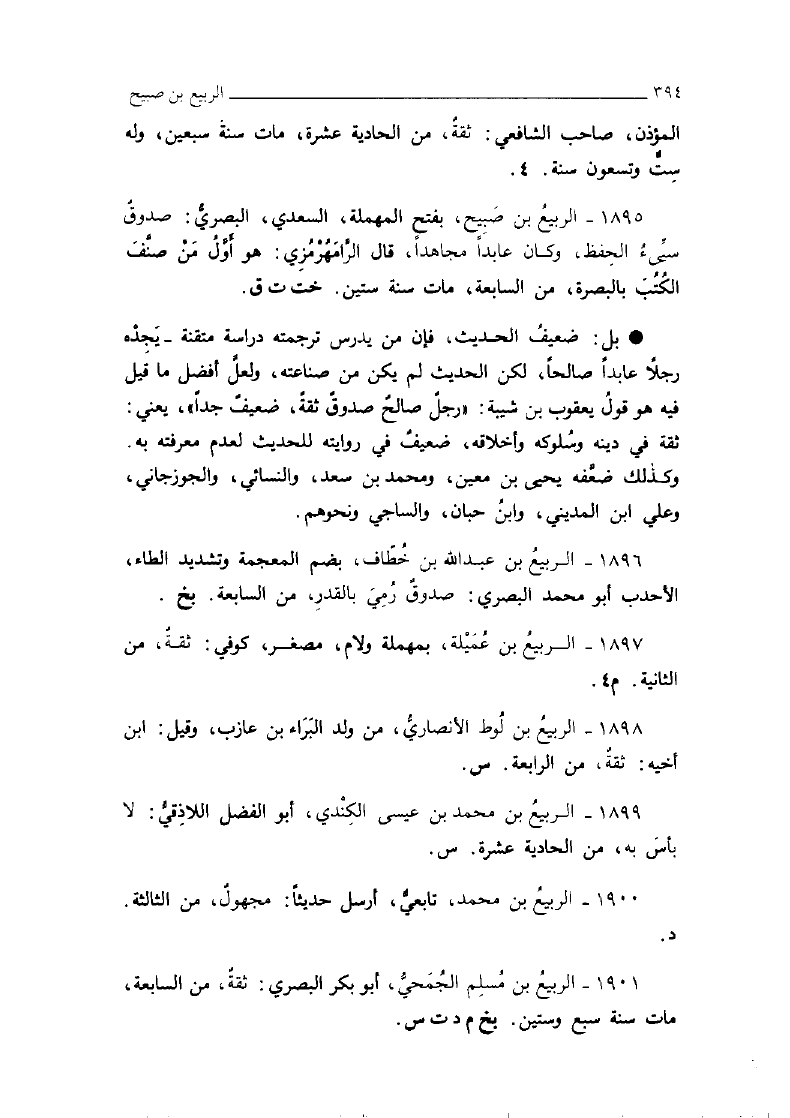 ٣٩٤ ــــــــــــــــــــــــــــــ الربيع بن صبيح
المؤذن، صاحب الشافعي: ثقةٌ، من الحادية عشرة، مات سنة سبعين، وله
ستٌّ وتسعون سنة. ٤.
١٨٩٥ ـ الربيعُ بن صَبِيح، بفتح المهملة، السعدي، البصريُّ: صدوقٌ
سيِّىءُ الحفظ، وكان عابداً مجاهداً، قال الرَّامَهُرْمُزِي: هو أَوَّلُ مَنْ صنَّفَ
الكُتُبَ بالبصرة، من السابعة، مات سنة ستين. خت ت ق.
● بل: ضعيفُ الحديث، فإن من يدرس ترجمته دراسة متقنة ـ يَجِدُه
رجلًا عابداً صالحاً، لكن الحديث لم يكن من صناعته، ولعلَّ أفضل ما قيل
فيه هو قولُ يعقوب بن شيبة: «رجلٌ صالحٌ صدوقٌ ثقةٌ، ضعيفٌ جداً»، يعني:
ثقة في دينه وسُلوكه وأخلاقه، ضعيفٌ في روايته للحديث لعدم معرفته به.
وكذلك ضعَّفه يحيى بن معين، ومحمد بن سعد، والنسائي، والجوزجاني،
وعلي ابن المديني، وابنُ حبان، والساجي ونحوهم.
١٨٩٦ ـ الربيعُ بن عبدالله بن خُطَّاف، بضم المعجمة وتشديد الطاء،
الأحدب أبو محمد البصري: صدوقٌ رُمِيَ بالقدرِ، من السابعة. بخ .
١٨٩٧ ـ الربيعُ بن عُمَيْلة، بمهملة ولام، مصغر، كوفي: ثقةٌ، من
الثانية. م٤.
١٨٩٨ ـ الربيعُ بن لُوط الأنصاريُّ، من ولد البَرَاء بن عازب، وقيل: ابن
أخيه: ثقةٌ، من الرابعة. س.
١٨٩٩ ـ الربيعُ بن محمد بن عيسى الكِنْدي، أبو الفضل اللاذِقيُّ: لا
بأسَ به، من الحادية عشرة. س.
١٩٠٠ ـ الربيعُ بن محمد، تابعيٌّ، أرسل حديثاً: مجهولٌ، من الثالثة.
د.
١٩٠١ ـ الربيعُ بن مُسلِم الجُمَحيُّ، أبو بكر البصري: ثقةٌ، من السابعة،
مات سنة سبع وستين. بخ م د ت س.